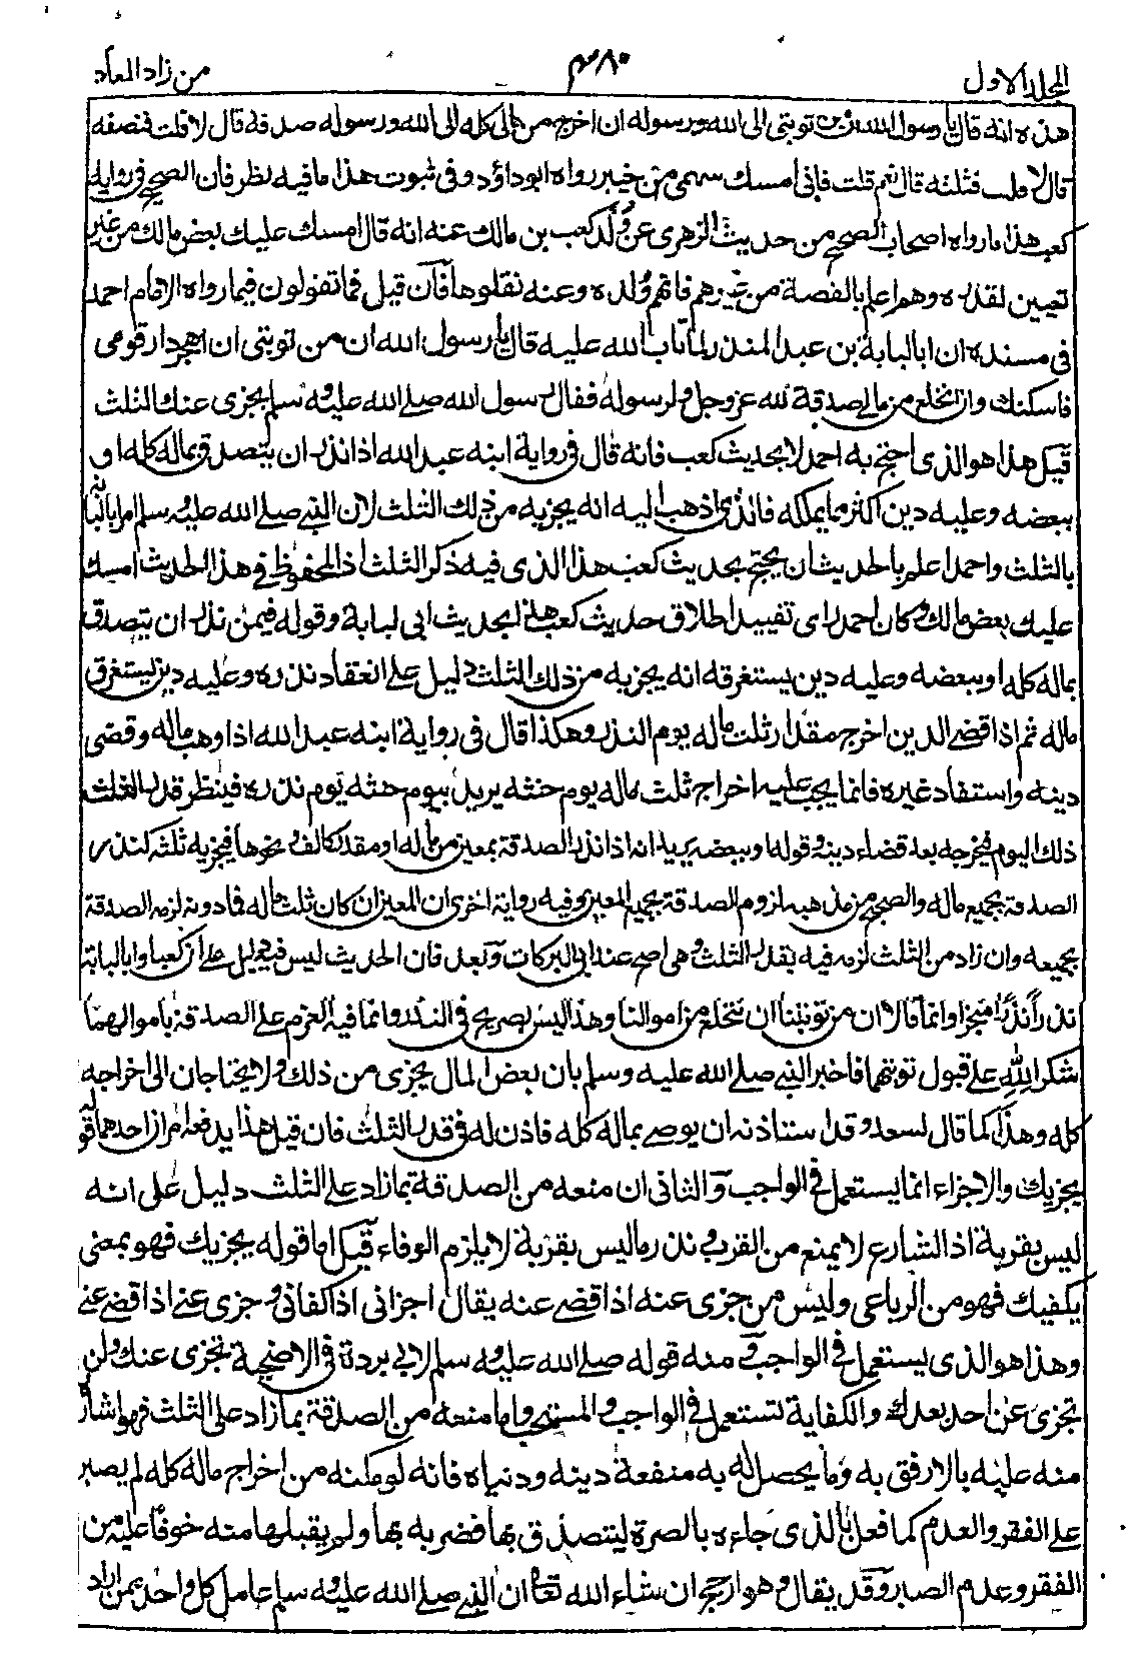 المجلد الاول
۴۸۰
من زاد المعاد
هذه انه قال يا رسول الله ان من توبتى الى الله ورسوله ان اخرج من مالى كله الى الله ورسوله صدقة قال لا قلت فنصفه
قال لا قلت فثلثه قال نعم قلت فانى امسك سهمى من خيبر رواه ابو داؤد وفى ثبوت هذا ما فيه نظر فان الصحيح فى رواية
كعب هذا ما رواه اصحاب الصحيح من حديث الزهرى عن ولد كعب بن مالك عنه انه قال امسك عليك بعض مالك من غير
تعيين لقدره وهم اعلم بالقصة من غيرهم فانهم ولده وعنه نقلوها فان قيل فما تقولون فيما رواه الامام احمد
فى مسنده ان ابا لبابة بن عبد المنذر لما تاب الله عليه قال يا رسول الله ان من توبتى ان اهجر دار قومى
فاسكنك وان انخلع من مالى صدقة لله عز وجل ولرسوله فقال رسول الله صلے الله عليه وسلم يجزى عنك الثلث
قيل هذا هو الذى احتج به احمد لا بحديث كعب فانه قال فى رواية ابنه عبد الله اذا نذر ان يتصدق بماله كله او
ببعضه وعليه دين اكثر مما يملكه فالذى اذهب اليه انه يجزيه من ذلك الثلث لان النبے صلے الله عليه وسلم امر ابا لبابة
بالثلث واحمد اعلم بالحديث ان يحتج بحديث كعب هذا الذى فيه ذكر الثلث اذ المحفوظ فى هذا الحديث امسك
عليك بعض مالك وكان احمد راى تقييد اطلاق حديث كعب هذا بحديث ابى لبابة وقوله فيمن نذر ان يتصدق
بماله كله او ببعضه وعليه دين يستغرقه انه يجزيه من ذلك الثلث دليل على انعقاد نذره وعليه دين يستغرق
ماله ثم اذا قضے الدين اخرج مقدار ثلث ماله يوم النذر وهكذا قال فى رواية ابنه عبد الله اذا وهب ماله وقضى
دينه واستفاد غيره فانما يجب عليه اخراج ثلث ماله يوم حنثه يريد بيوم حنثه يوم نذره فينظر قدر الثلث
ذلك اليوم فيخرجه بعد قضاء دينه وقوله او ببعضه يريد انه اذا نذر الصدقة بمعين من ماله او مقدر كالف ونحوها فيجزيه ثلثه كنذر
الصدقة بجميع ماله والصحيح من مذهبه لزوم الصدقة بجميع المعين وفيه رواية اخرى ان المعين ان كان ثلث ماله فما دونه لزمه الصدقة
بجميعه وان زاد من الثلث لزمه فيه بقدر الثلث وهى اصح عند ابى البركات وبعد فان الحديث ليس فيه دليل على ان كعبا وابا لبابة
نذرا نذرا منجزا وانما قالا ان من توبتنا ان ننخلع من اموالنا وهذا ليس بصريح فى النذر وانما فيه العزم على الصدقة باموالهما
شكرا لله على قبول توبتهما فاخبر النبے صلے الله عليه وسلم بان بعض المال يجزى من ذلك ولا يحتاجان الى اخراجه
كله وهذا كما قال لسعد وقد استاذنه ان يوصے بماله كله فاذن له فى قدر الثلث فان قيل هذا يدفعه امران احدهما قوله
يجزيك والاجزاء انما يستعمل فى الواجب والثانى ان منعه من الصدقة بما زاد على الثلث دليل على انه
ليس بقربة اذ الشارع لا يمنع من القرب ونذر ما ليس بقربة لا يلزم الوفاء قيل اما قوله يجزيك فهو بمعنى
يكفيك فهو من الرباعى وليس من جزى عنه اذا قضے عنه يقال اجزانى اذا كفانى وجزى عنے اذا قضے عنے
وهذا هو الذى يستعمل فى الواجب ومنه قوله صلے الله عليه وسلم لابى بردة فى الاضحية تجزى عنك ولن
تجزى عن احد بعدك والكفاية تستعمل فى الواجب والمستحب واما منعه من الصدقة بما زاد على الثلث فهو اشارة
منه عليه بالارفق به وما يحصل له به منفعة دينه ودنياه فانه لو مكنه من اخراج ماله كله لم يصبر
على الفقر والعدم كما فعل بالذى جاءه بالصرة ليتصدق بها فضربه بها ولم يقبلها منه خوفا عليه من
الفقر وعدم الصبر وقد يقال وهو ارجح ان شاء الله تعالى ان النبے صلے الله عليه وسلم عامل كل واحد ممن اراد